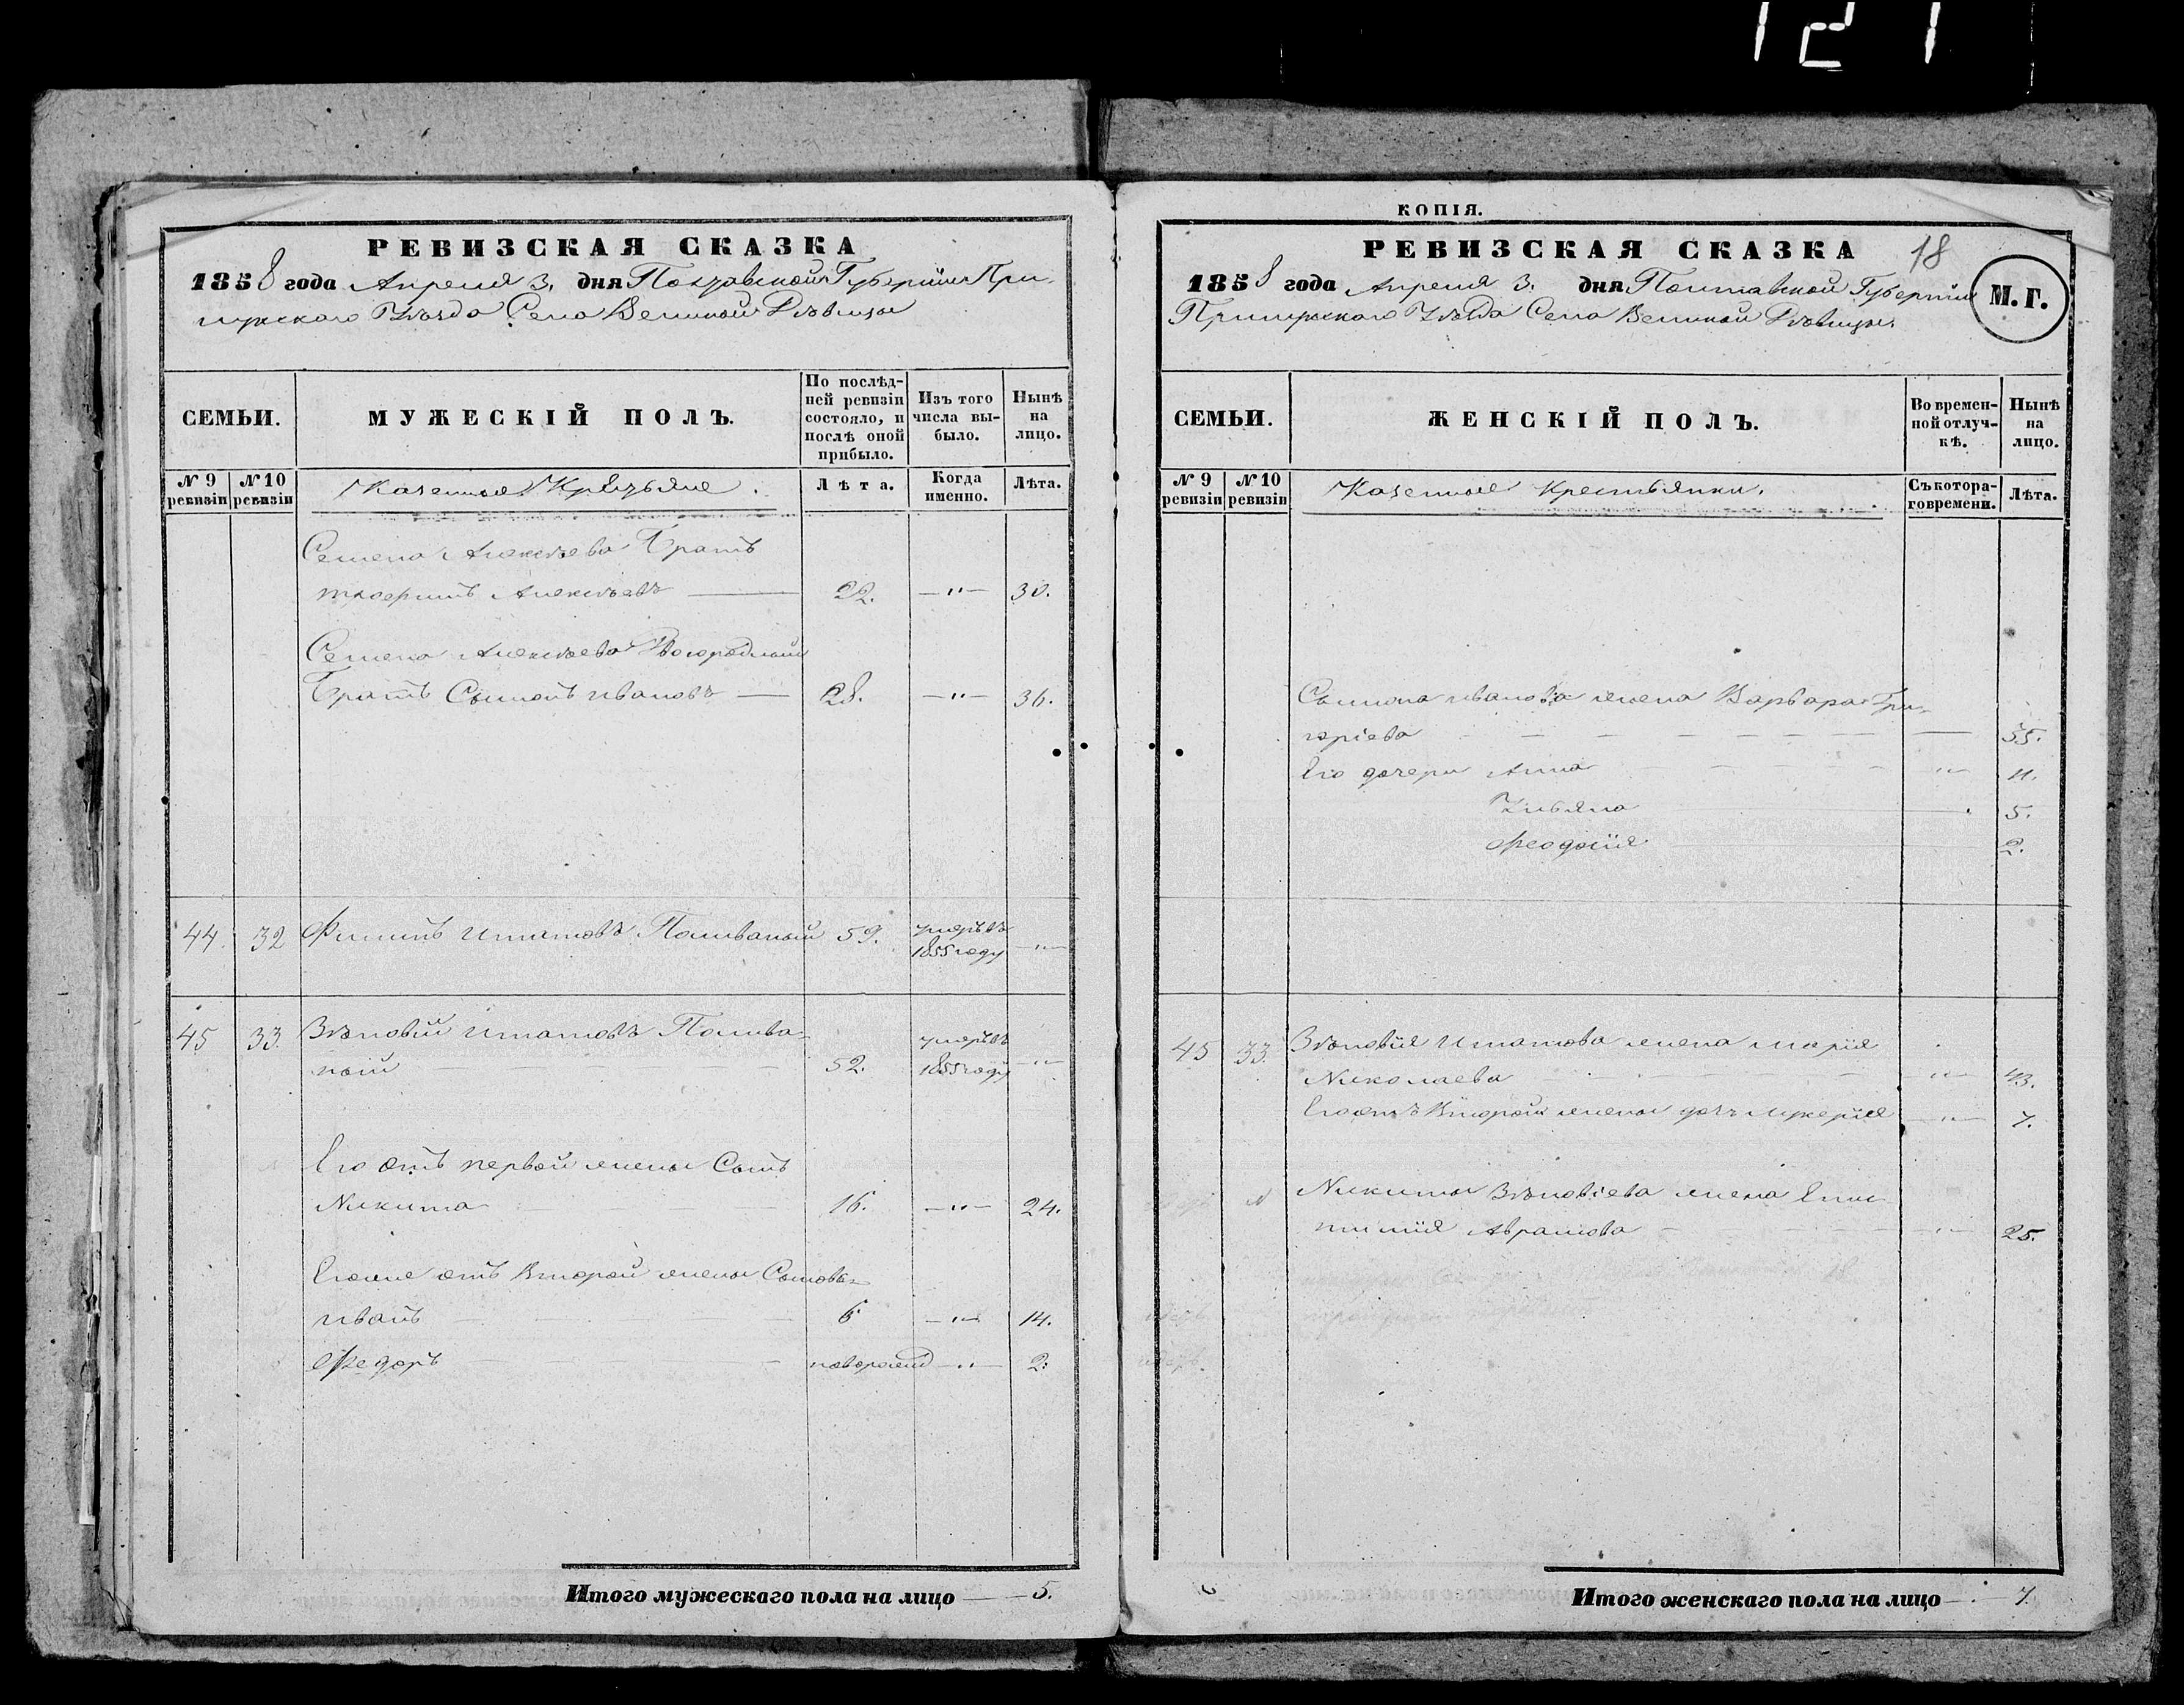 121
РЕВИЗСКАЯ СКАЗКА
1858 года Апреля 3. дня Полтавской Губерніи При-
лукского Уѣзда Села Великой Дѣвицы
СЕМЬИ.
МУЖЕСКІЙ ПОЛЪ.
По послѣд-
ней ревизіи
состояло, и
послѣ оной
прибыло.
Изъ того
числа вы-
было.
Нынѣ
на
лицо.
№ 9
ревизіи
№ 10
ревизіи
Казенные Крестьяне.
Лѣта.
Когда
именно.
Лѣта.
Семена Алексѣева Братъ
Алексѣевъ 22. — " — 30.
Семена Алексѣева Двоюродный
Братъ Самсонъ Ивановъ — 28. — " — 36.
44. 32 Филипъ Игнатовъ Поливаный 59. умеръ въ
1855 году — " —
45 33. Зѣновій Игнатовъ Полива-
ный 52. умеръ въ
1855 году — " —
Его отъ первой жены Сынъ
Никита 16. — " — 24.
Егоже отъ Второй жены Сыновья
Иванъ 6 — " — 14.
Федоръ новорожд — " — 2.
Итого мужескаго пола на лицо — 5.
КОПІЯ.
РЕВИЗСКАЯ СКАЗКА
18
1858 года Апреля 3. дня Полтавской Губерніи
М. Г.
Прилукского Уѣзда Села Великой Дѣвицы.
СЕМЬИ.
ЖЕНСКІЙ ПОЛЪ.
Во времен-
ной отлуч-
кѣ.
Нынѣ
на
лицо.
№ 9
ревизіи
№ 10
ревизіи
Казенные Крестьянки.
Съ котора-
го времени.
Лѣта.
Самсона Иванова жена Варвара Гри-
горіева — 35.
Его дочери Анна — " — 11.
Ульяна — 5.
Феодосія 2.
45 33. Зѣновія Игнатова жена Марія
Николаева — " — 43.
Его отъ Второй жены дочь Лукерія — " — 7.
Никиты Зѣновіева жена
Аврамова — " — 25.
Итого женскаго пола на лицо — 7.